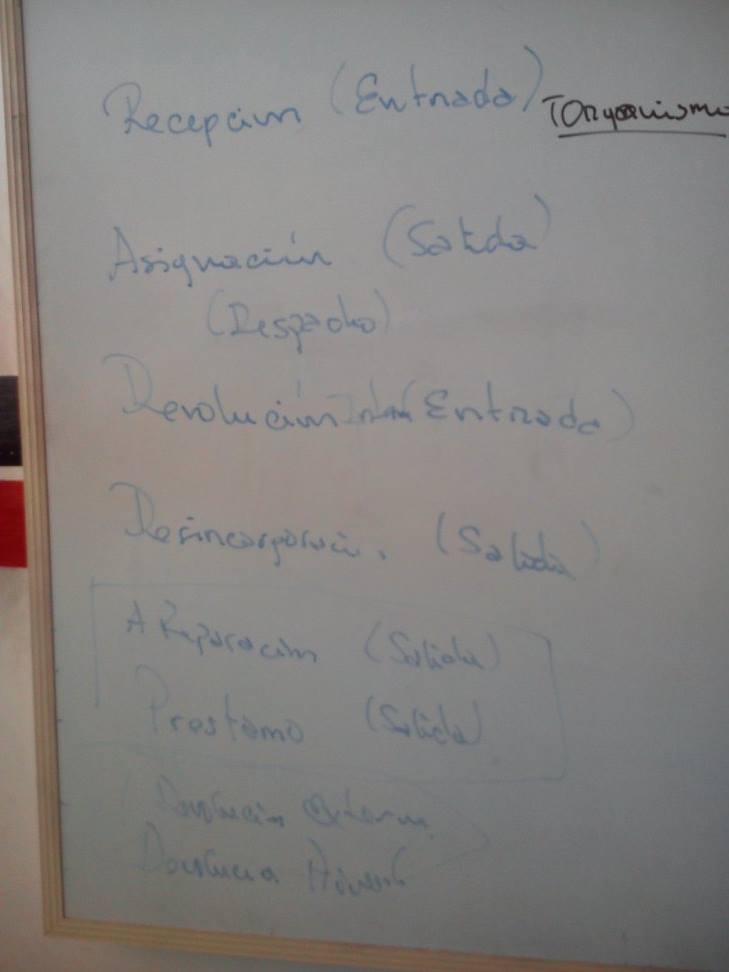 Recepción (Entrada) TOrganismo
Asignación (Salida)
(Despacho)
Devolución Interna (Entrada)
Desincorporación. (Salida)
A Reparación (Salida)
Prestamo (Salida)
Devolución Externa
Devolución